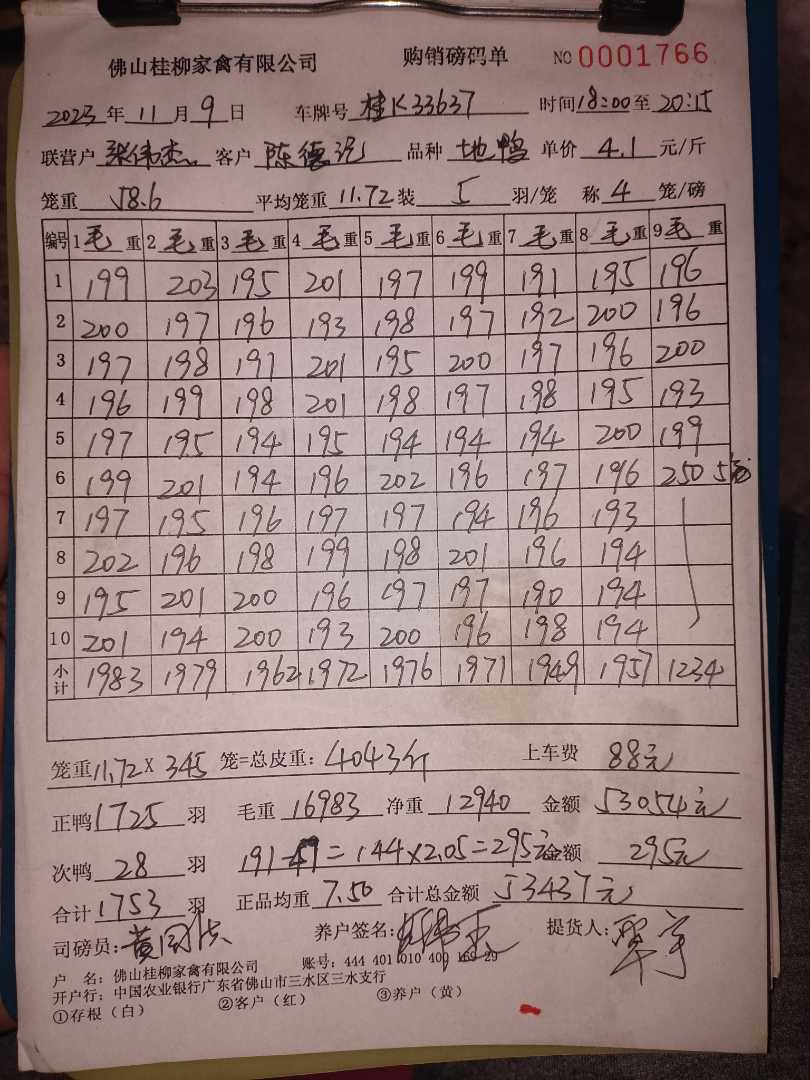 佛山桂柳家禽有限公司 购销磅码单 NO 0001766
2023年11月9日 车牌号 桂K33637 时间18:00至20:15
联营户 张伟杰 客户 陈德 品种 地鸭 单价 4.1 元/斤
笼重 58.6 平均笼重 11.72 装 5 羽/笼 称 4 笼/磅
编号 1毛重 2毛重 3毛重 4毛重 5毛重 6毛重 7毛重 8毛重 9毛重
1 199 203 195 201 197 199 191 195 196
2 200 197 196 193 198 197 192 200 196
3 197 198 191 201 195 200 197 196 200
4 196 199 198 201 198 197 198 195 193
5 197 195 194 195 194 194 194 200 199
6 199 201 194 196 202 196 197 196 250 5笼
7 197 195 196 197 197 194 196 193
8 202 196 198 199 198 201 196 194
9 195 201 200 196 197 197 190 194
10 201 194 200 193 200 196 198 194
小计 1983 1979 1962 1972 1976 1971 1949 1957 1234
笼重11.72X 345 笼=总皮重：4043斤 上车费 88元
正鸭1725羽 毛重 16983 净重 12940 金额 53054元
次鸭 28 羽 191-47=144×2.05=295元 金额 295元
合计1753羽 正品均重 7.50 合计总金额 53437元
司磅员： 养户签名： 提货人：
户 名：佛山桂柳家禽有限公司 账号：444 401 010 400 169 29
开户行：中国农业银行广东省佛山市三水区三水支行
①存根（白） ②客户（红） ③养户（黄）